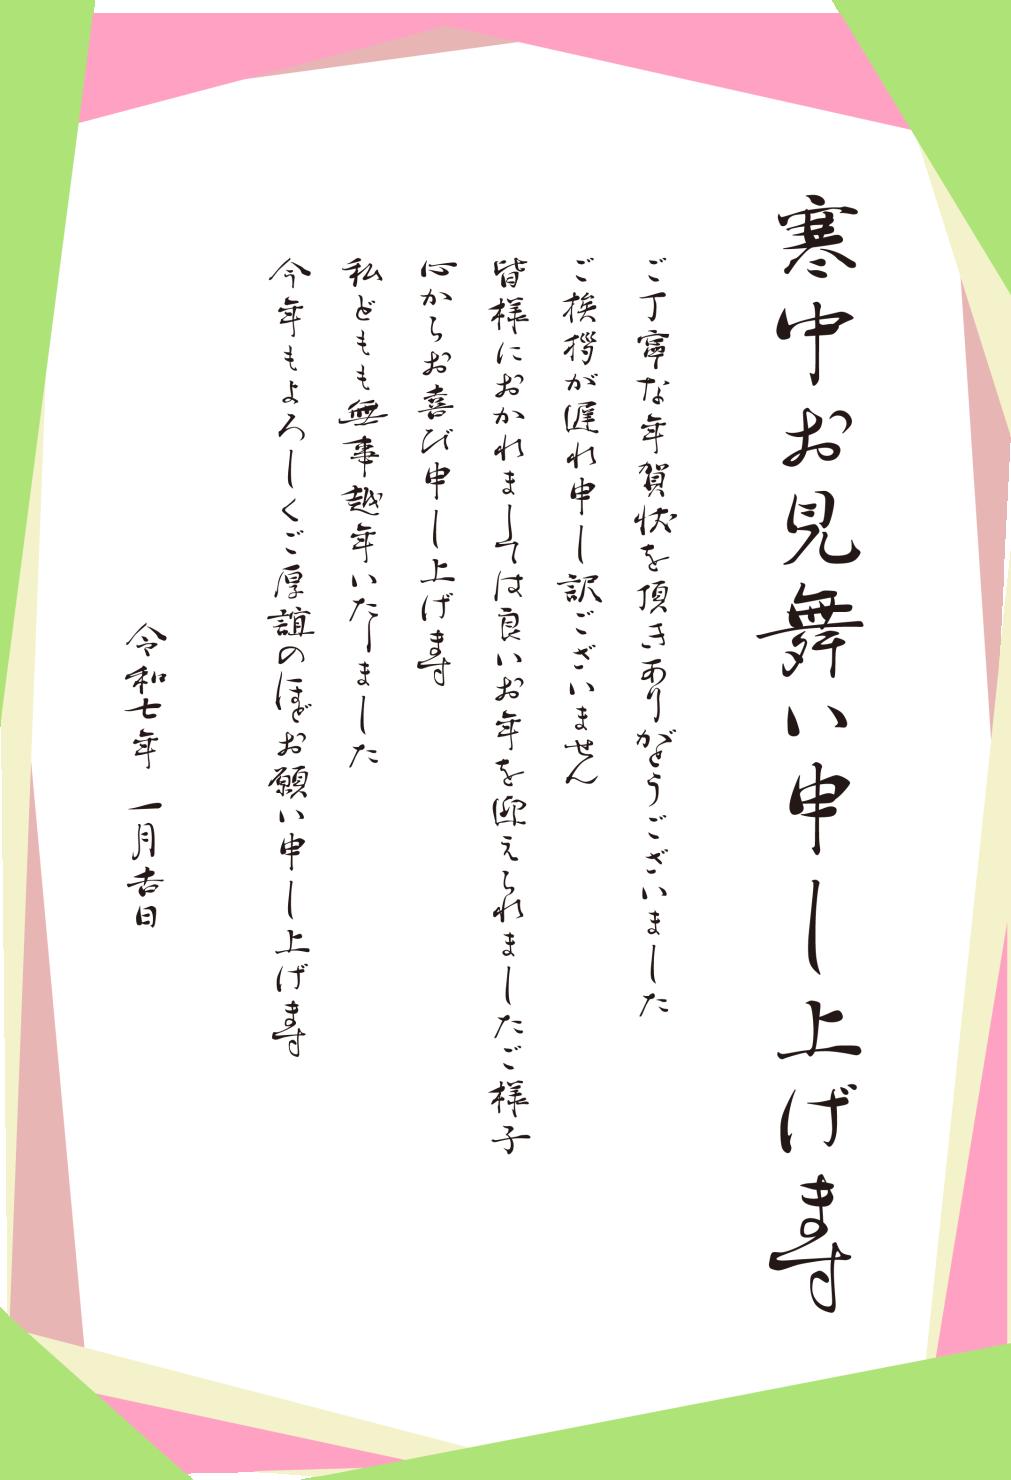 寒中お見舞い申し上げます
ご丁寧な年賀状を頂きありがとうございました
ご挨拶が遅れ申し訳ございません
皆様におかれましては良いお年を迎えられましたご様子
心からお喜び申し上げます
私どもも無事越年いたしました
今年もよろしくご厚誼のほどお願い申し上げます
令和七年　一月吉日